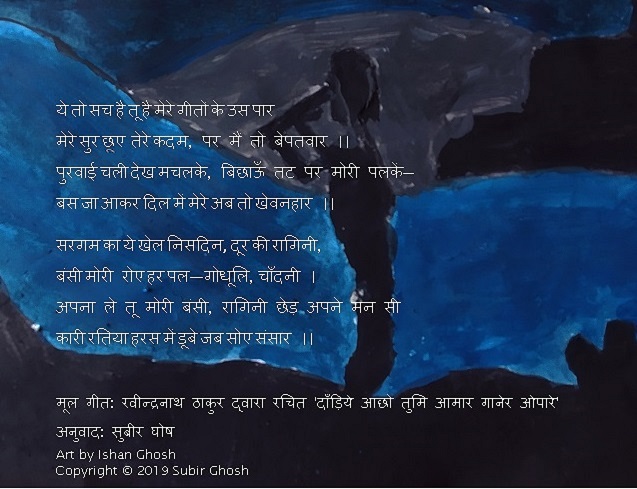 ये तो सच है तू है मेरे गीतो के उस पार
मेरे सुर छूए तेरे कदम, पर मैं तो बेपतवार ।।
पुरवाई चली देख मचलके, बिछाऊँ तट पर मोरी पलकें—
बस जा आकर दिल में मेरे अब तो खेवनहार ।।
सरगम का ये खेल निसदिन, दूर की रागिनी,
बंसी मोरी रोए हर पल—गोधूलि, चाँदनी ।
अपना ले तू मोरी बंसी, रागिनी छेड़ अपने मन सी
कारी रतिया हरस में डूबे जब सोए संसार ।।
मूल गीत: रवीन्द्रनाथ ठाकुर द्वारा रचित 'दाँड़िये आछो तुमि आमार गानेर ओपारे'
अनुवाद: सुबीर घोष
Art by Ishan Ghosh
Copyright © 2019 Subir Ghosh